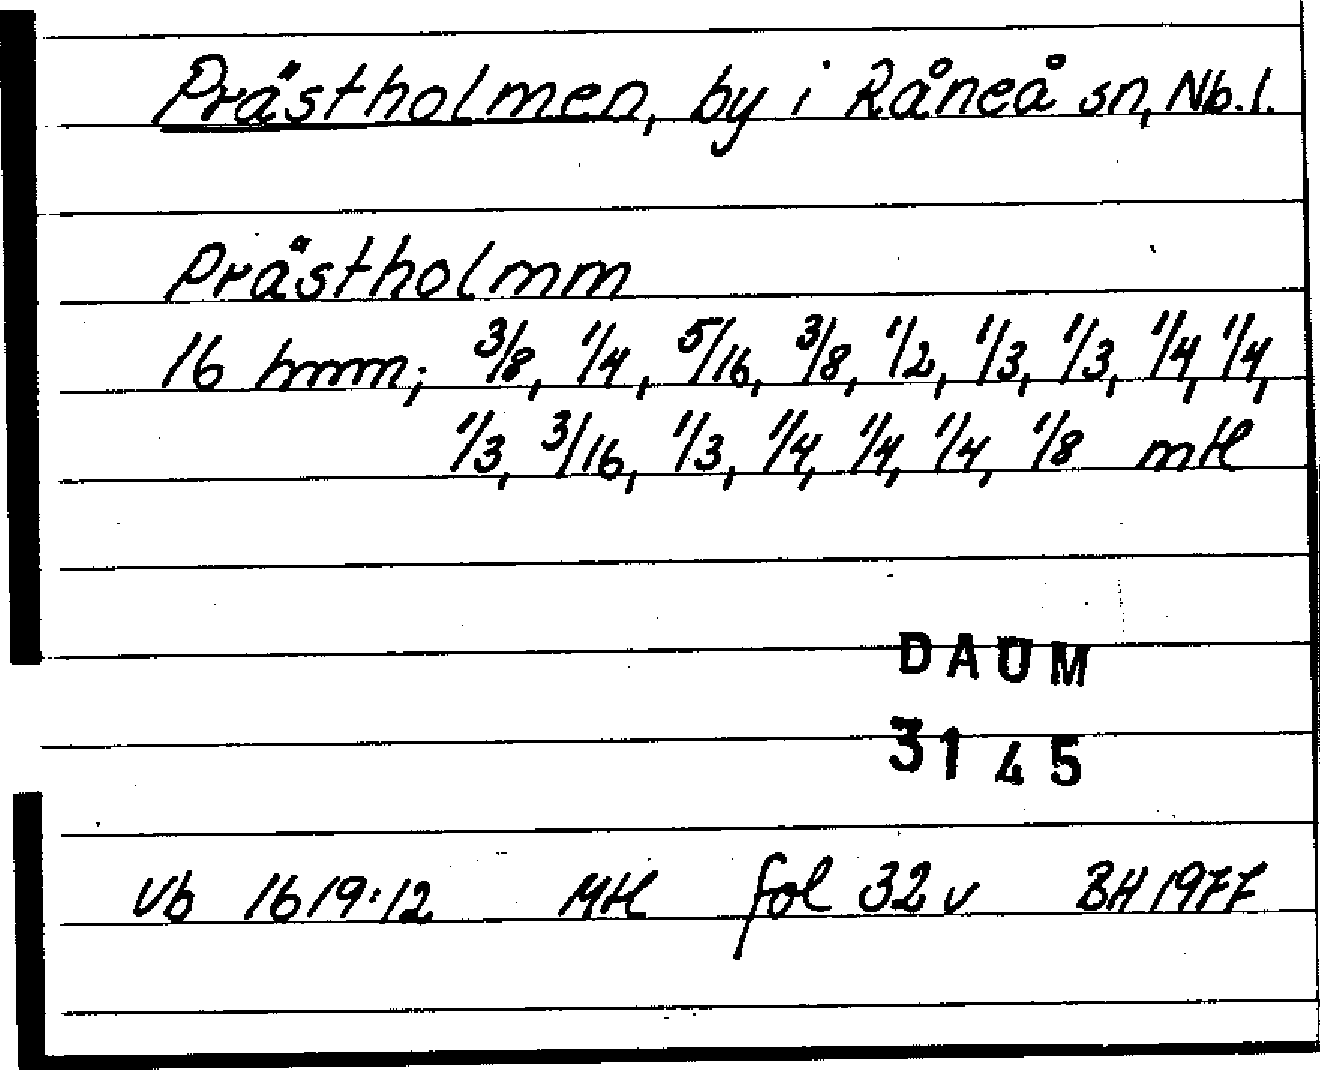 Prästholmen, by i Råneå sn, Nb.l.
Prästholmm
16 hmm; 3/8, 1/4, 5/16, 3/8, 1/2, 1/3, 1/3, 1/4, 1/4,
1/3, 3/16, 1/3, 1/4, 1/4, 1/4, 1/8 mtl
DAUM
3145
Vb 1619:12 Mtl fol 32 v BH 1977